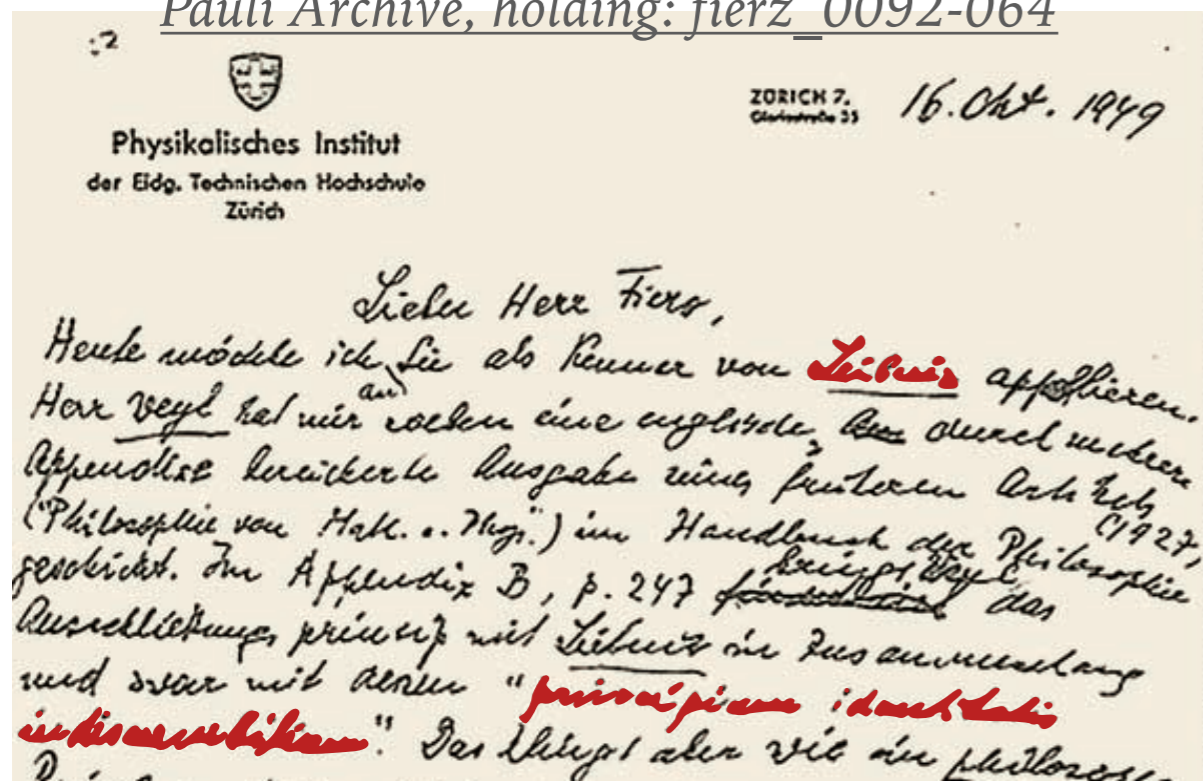 Pauli Archive, holding: fierz_0092-064
Physikalisches Institut
der Eidg. Technischen Hochschule
Zürich
ZÜRICH 7.
Gloriastraße 35
16. Okt. 1949
Lieber Herr Fierz,
Heute möchte ich Sie als Kenner von Leibniz appellieren.
an
Herr Weyl hat mir soeben eine englische, durch mehrere
Appendixe bereicherte Ausgabe seines früheren Artikels
("Philosophie von Math. u. Phys.") im Handbuch der Philosophie
(1927,
geschickt. Im Appendix B, p. 247 bringt Weyl das
Ausschließungsprinzip mit Leibniz in Zusammenhang
und zwar mit dessen "principium identitatis
indiscernibilium". Das klingt aber wie ein philosoph